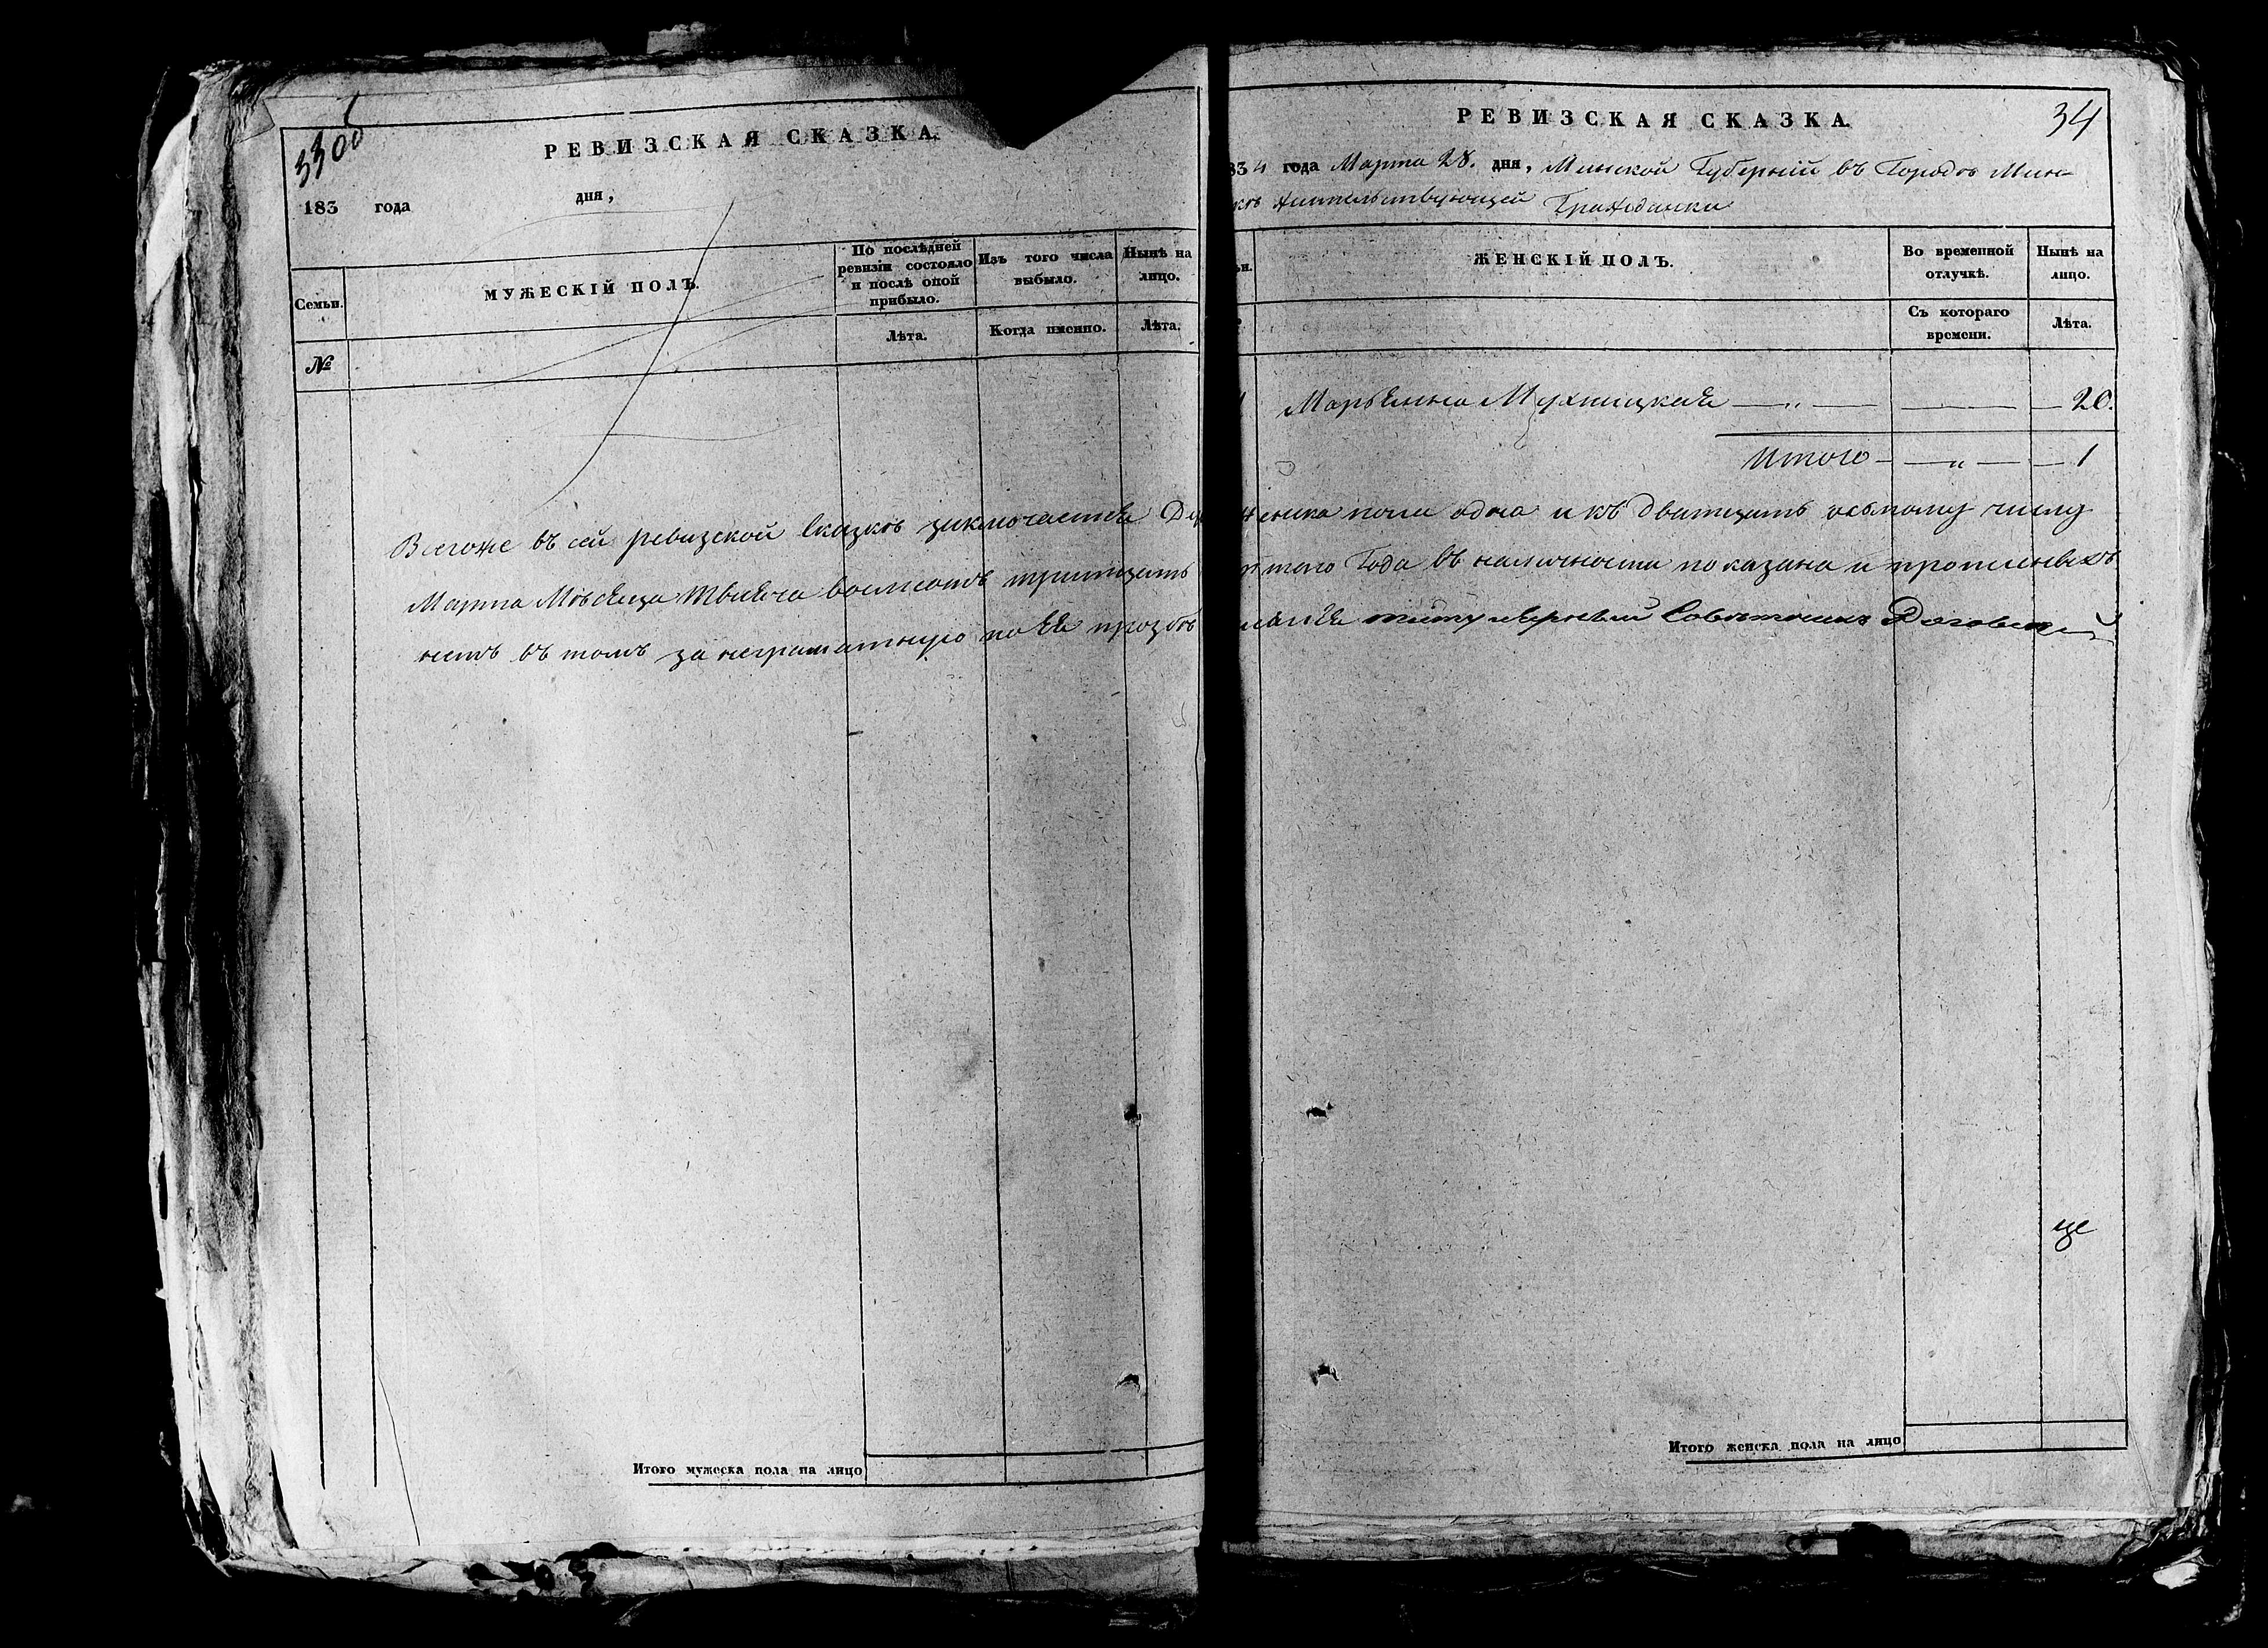 330
РЕВИЗСКАЯ СКАЗКА.
183 года дня,
Семьи.
МУЖЕСКІЙ ПОЛЪ.
По послѣдней ревизіи состояло и послѣ оной прибыло.
Изъ того числа выбыло.
Нынѣ на лицо.
№
Лѣта.
Когда именно.
Лѣта.
Всегоже въ сей ревизской сказкѣ заключается
Марта Мѣсяца тысяча восмсотъ тритцать
нетъ въ томъ за неграматную по ея прозбѣ
Итого мужеска пола на лицо
34
РЕВИЗСКАЯ СКАЗКА.
834 года Марта 28. дня, Минской Губерній въ Городѣ Мин-
скѣ жительствующей Гражданки
ЖЕНСКІЙ ПОЛЪ.
Во временной отлучкѣ.
Нынѣ на лицо.
Съ котораго времени.
Лѣта.
1 Марьянна Мухницкая — „ — — — 20.
Итого — — „ — — 1
женска пола одна и къ дватцать осьмому числу
того Года въ наличности показана и прописныхъ
титулярный Советникъ
Итого женска пола на лицо